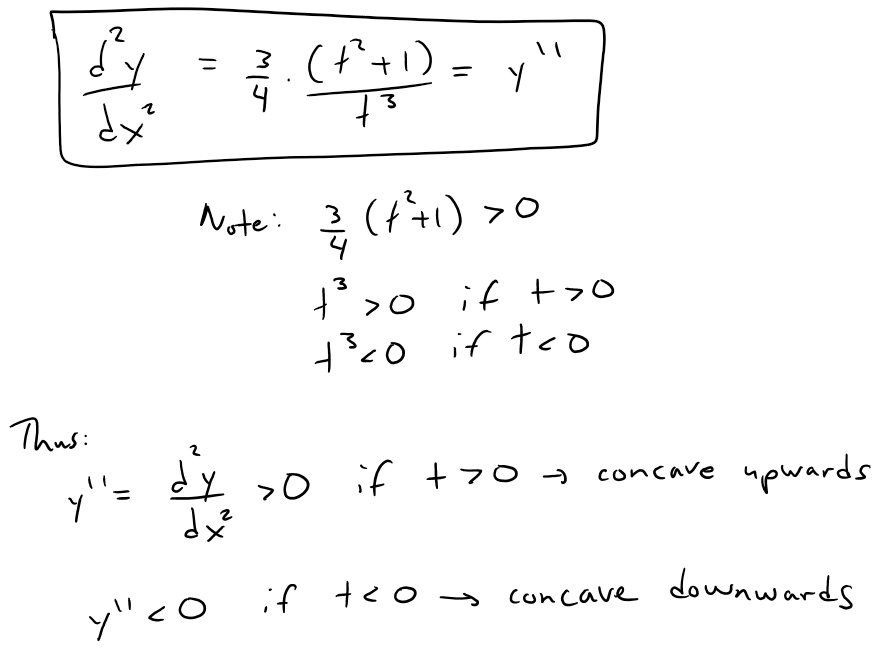 d²y/dx² = 3/4 · (t²+1)/t³ = y''
Note: 3/4 (t²+1) > 0
t³ > 0 if t > 0
t³ < 0 if t < 0
Thus:
y'' = d²y/dx² > 0 if t > 0 → concave upwards
y'' < 0 if t < 0 → concave downwards